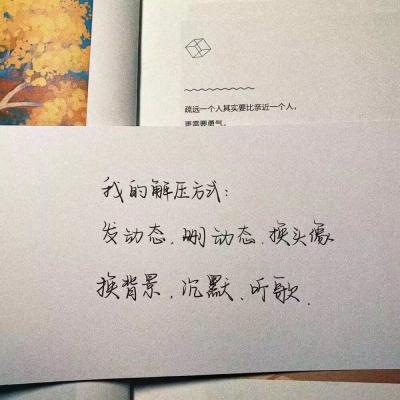 疏远一个人其实要比亲近一个人，
更需要勇气。
我的解压方式：
发动态．删动态．换头像
换背景．沉默．听歌．